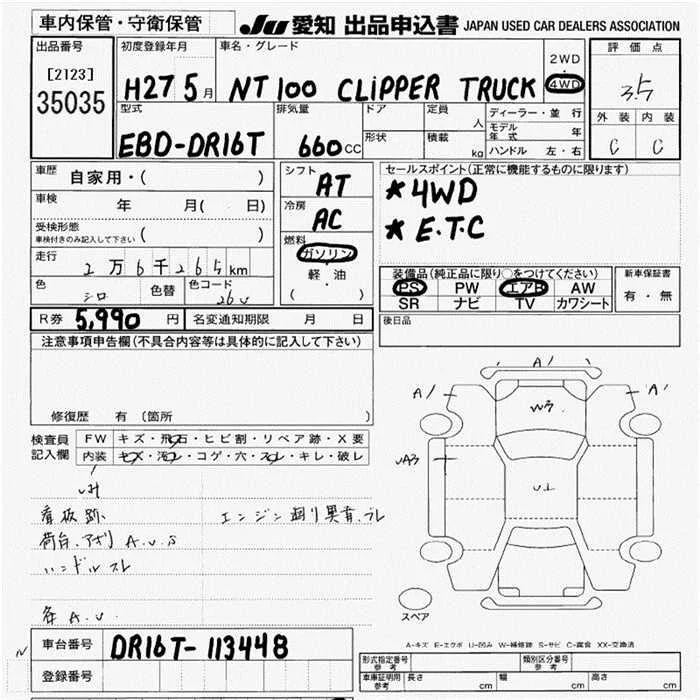 車内保管・守衛保管 JU 愛知 出品申込書 JAPAN USED CAR DEALERS ASSOCIATION
出品番号 初度登録年月 車名・グレード 2WD 評価点
[2123] H27 5月 NT100 CLIPPER TRUCK 4WD 3.5
35035
型式 排気量 ドア 定員 人 ディーラー・並行 外装 内装
モデル年式 年
EBD-DR16T 660cc 形状 積載 kg ハンドル 左・右 C C
車歴 自家用・( ) シフト AT セールスポイント(正常に機能するものに限ります)
車検 年 月( 日) 冷房 AC ★4WD
受検形態 ( ) ★E.T.C
車検付きのみ記入して下さい
燃料 ガソリン
走行 2万6千265km 軽・油 装備品(純正品に限り○をつけてください) 新車保証書
色 シロ 色替 色コード 26U ( ) PS PW エアB AW 有・無
SR ナビ TV カワシート
R券 5,990円 名変通知期限 月 日 後日品
注意事項申告欄(不具合内容等は具体的に記入して下さい)
修復歴 有(箇所 )
検査員 FW キズ・飛石・ヒビ割・リペア跡・X要
記入欄 内装 キズ・汚レ・コゲ・穴・スレ・キレ・破レ
A1
A1
A1
W3
UA3
U1
看板跡 エンジン廻り異音.フレ
荷台.アオリ A.U.S
ハンドルスレ
各 A.U.
スペア
A-キズ E-エクボ U-凹み W-補修跡 S-サビ C-腐食 XX-交換済
車台番号 DR16T-113448
登録番号
形式指定番号 参考 類別区分番号 参考
車庫証明用 参考 長さ cm 幅 cm 高さ cm